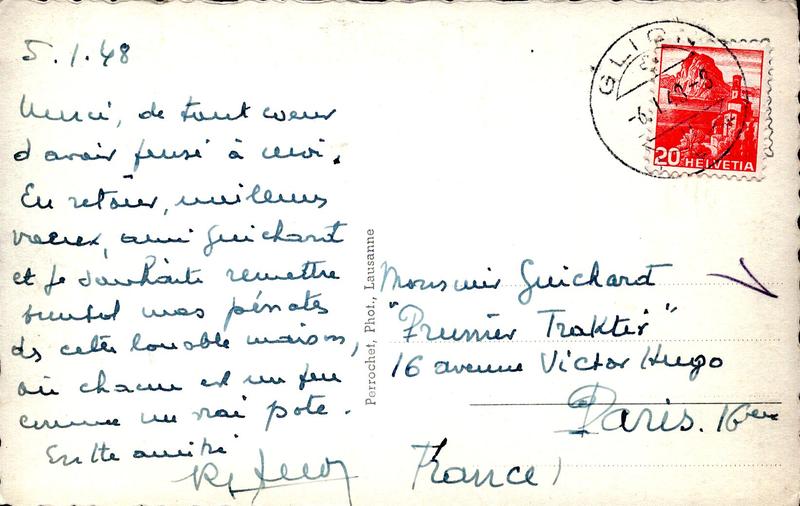 5.1.48
Merci, de tout coeur
d'avoir pensé à moi.
En retour, meilleurs
voeux, ami Guichard
et je souhaite remettre
bientôt mes pénates
ds cette louable maison,
où chacun est un peu
comme un vrai pote.
En tte amitié
Perrochet, Phot., Lausanne
GLION
20 HELVETIA
Monsieur Guichard
"Prunier Traktir"
16 avenue Victor Hugo
Paris. 16eme
France